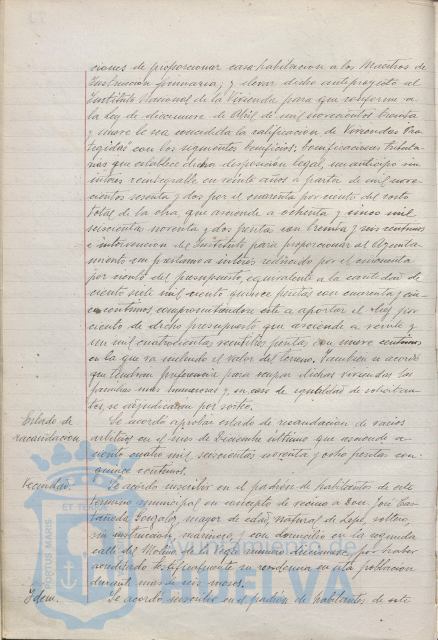 ciones de proporcionar casa-habitación a los Maestros de
Instrucción primaria; y elevar dicho anteproyecto al
Instituto Nacional de la Vivienda para que conforme a
la Ley de diecinueve de Abril de mil novecientos treinta
y nueve le sea concedida la calificación de Viviendas Pro-
tegidas con los siguientes beneficios: bonificaciones tributa-
rias que establece dicha disposición legal, un anticipo sin
interés reintegrable en veinte años a partir de mil nove-
cientos sesenta y dos por el cuarenta por ciento del costo
total de la obra, que asciende a ochenta y cinco mil
seiscientas noventa y dos pesetas con treinta y seis centimos
e intervención del Instituto para proporcionar al Ayunta-
miento un prestamo a interés reducido por el cincuenta
por ciento del presupuesto, equivalente a la cantidad de
ciento siete mil ciento quince pesetas con cuarenta y cin-
co centimos comprometiendose este a aportar el diez por
ciento de dicho presupuesto que asciende a veinte y
un mil cuatrocientas veintitres pesetas con nueve centimos
en la que va incluido el valor del terreno. Tambien se acordó
que tendrán preferencia para ocupar dichas viviendas las
familias mas numerosas y en caso de igualdad de solicitan-
tes, se adjudicarán por sorteo.
Estado de
recaudación
Se acordó aprobar estado de recaudación de varios
arbitrios en el mes de Diciembre ultimo que asciende a
ciento cuatro mil seiscientas noventa y ocho pesetas con
quince centimos.
Vecindad.
Se acordó inscribir en el padrón de habitantes de este
termino municipal en concepto de vecino a Don José Cas-
tañeda Gonzalez, mayor de edad, natural de Lepe, soltero,
sin instrucción, marinero, con domicilio en la segunda
calle del Molino de la Vega numero diecinueve por haber
acreditado testificalmente su residencia en esta población
durante mas de seis meses.
Idem.
Se acordó inscribir en el padrón de habitantes de este
PORTUS MARIS
ET TERRAE
Ayuntamiento de
HUELVA